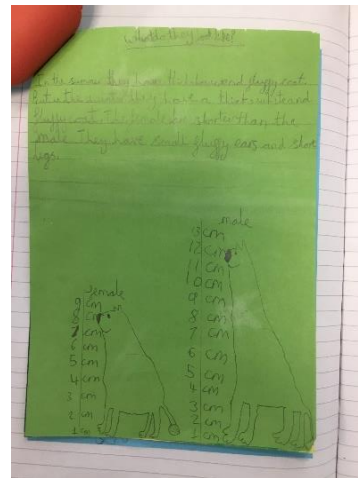 What do they look like?
In the summer they have thick brown and fluffy coat.
But in the winter they have a thick white and
fluffy coat. The female is shorter than the
male. They have small fluffy ears and short
legs.
male
13 cm
12 cm
11 cm
10 cm
9 cm
8 cm
7 cm
6 cm
5 cm
4 cm
3 cm
2 cm
1 cm
female
9 cm
8 cm
7 cm
6 cm
5 cm
4 cm
3 cm
2 cm
1 cm